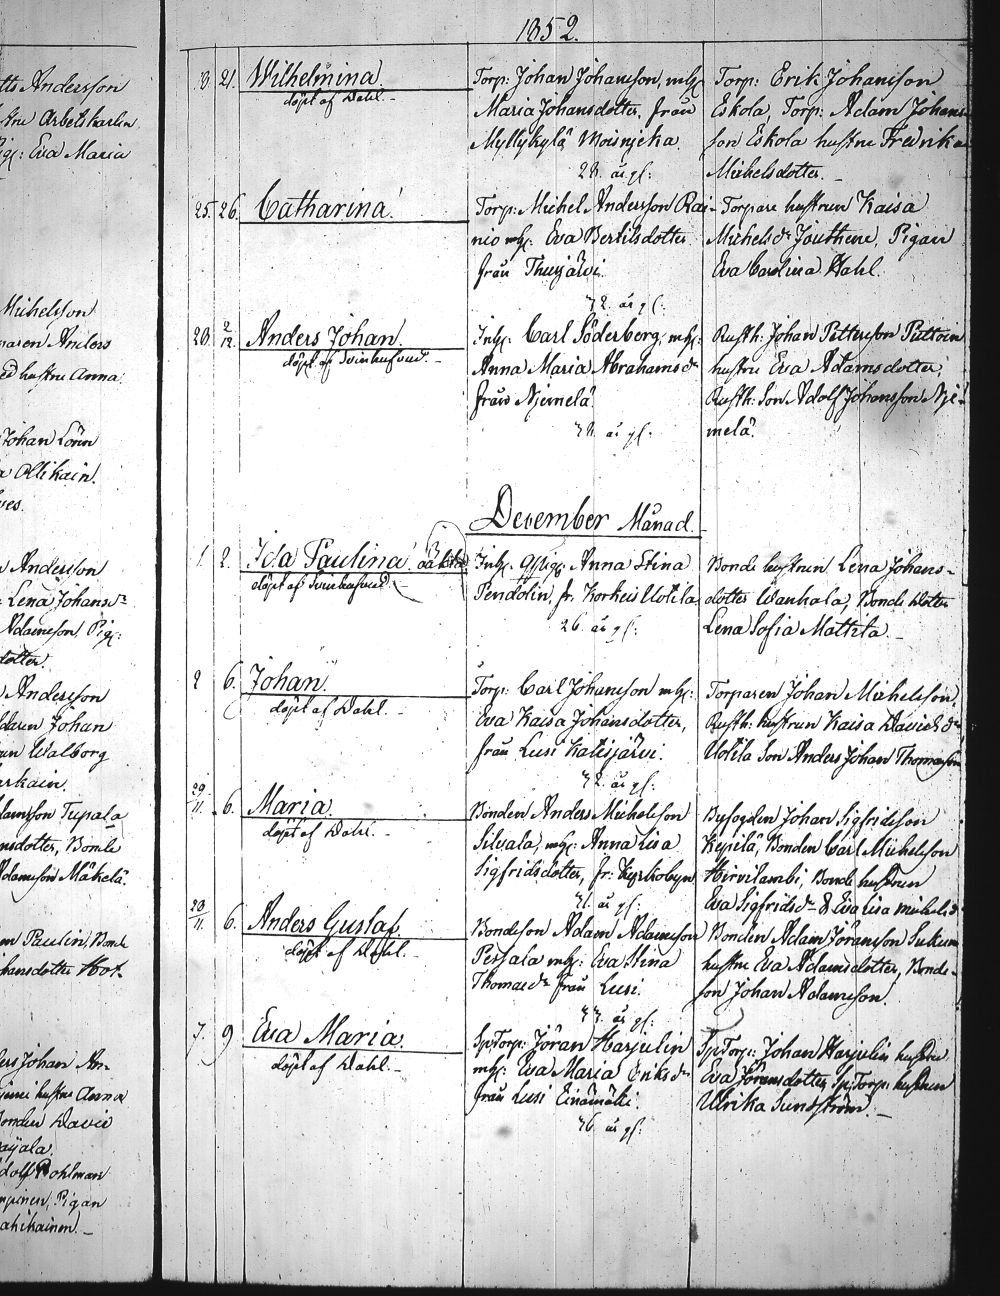 1852.
tts Andersson
stru Arbetskarlen
Pig: Eva Maria
Michelsson
Anders
hustru Anna
Johan Lönn
Ollikain.
Andersson
Lena Johansdr
Adamsson Pig:
dotter.
Andersson
Johan
Walborg
arkain.
damsson Tupala
nsdotter, Bonde
Adamsson Mäkelä.
Paulin, Bonde
hansdotter Hot-
Johan An-
hustru Anna
onden David
ajala.
dolf Pohlman
Pigan
ahikainen.
8. 21. Wilhelmina.
döpt af Dahl.
Torp: Johan Johansson, mhg:
Maria Johansdotter, från
Myllykylä Moisnjeka.
28. år gl:
Torp: Erik Johansson
Eskola, Torp: Adam Johans-
son Eskola hustru Fredrika
Michelsdotter.
25. 26. Catharina.
Torp: Michel Andersson Rai-
nio mhg: Eva Bertilsdotter
från Thurjärvi.
42. år gl:
Torpare hustrun Kaisa
Michelsdr Jouthene, Pigan
Eva Carolina Dahl.
28. 2/12. Anders Johan.
döpt af Svinhufvud.
Inhg: Carl Söderberg, mhg:
Anna Maria Abrahamsdr
från Njemelä.
år gl:
Rusth: Johan Pettersson
hustru Eva Adamsdotter,
Rusth: Son Adolf Johansson Nje-
melä.
December Månad.
1. 2. Ida Paulina oäkta
döpt af Svinhufvud.
Inhg: Qspig: Anna Stina
Pendolin, fr. Korkeis Uotila
26. år gl:
Bonde hustrun Lena Johans-
dotter Wankala, Bonde dotter
Lena Sofia Mattila.
2 6. Johan.
döpt af Dahl.
Torp: Carl Johansson mhg:
Eva Kaisa Johansdotter,
från Lusi Katisjärvi.
42. år gl:
Torparen Johan Michelsson,
Rusth: hustrun Kaisa Davidsdr
Uotila Son Anders Johan Thomasson
29/11. 6. Maria.
döpt af Dahl.
Bonden Anders Michelsson
Silvala, mhg: Anna Lisa
Sigfridsdotter, fr: Kyrkobyn
41. år gl:
Byfogden Johan Sigfridsson
Kepilä, Bonden Carl Michelsson
Hirvilambi, Bonde hustrun
Eva Sigfridsdr & Eva Lisa Michelsdr
28/11. 6. Anders Gustaf.
döpt af Dahl.
Bondeson Adam Adamsson
Perjala mhg: Eva Stina
Thomasdr från Lusi.
år gl:
Bonden Adam Jöransson
hustru Eva Adamsdotter, Bonde-
son Johan Adamsson.
7. 9 Eva Maria.
döpt af Dahl.
SpTorp: Jöran Harjulin
mhg: Eva Maria Eriksdr
från Lusi Einämäki.
46. år gl:
SpTorp: Johan Harjulin hustru
Eva Jöransdotter, SpTorp: hustrun
Ulrika Sundström.